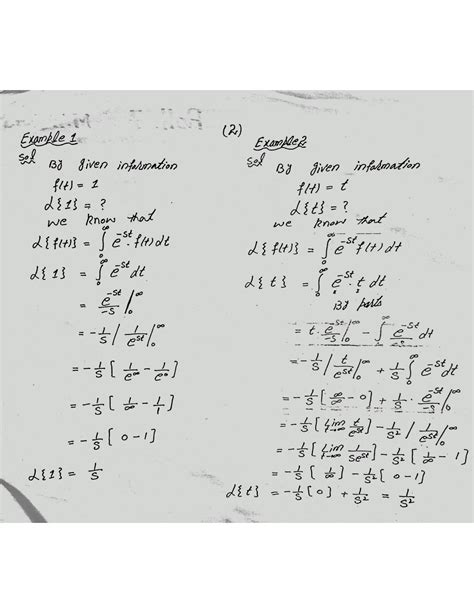 (2)
Example 1
Sol By given information
f(t) = 1
ℒ{1} = ?
we know that
ℒ{f(t)} = ∫₀^∞ e^-st . f(t) dt
ℒ{1} = ∫₀^∞ e^-st dt
= e^-st/-s |₀^∞
= -1/s | 1/e^st |₀^∞
= -1/s [ 1/e^∞ - 1/e^0 ]
= -1/s [ 1/∞ - 1/1 ]
= -1/s [ 0-1 ]
ℒ{1} = 1/s
Example 2
Sol By given information
f(t) = t
ℒ{t} = ?
we know that
ℒ{f(t)} = ∫₀^∞ e^-st f(t) dt
ℒ{t} = ∫₀^∞ e^-st . t dt
By parts
= t . e^-st/-s |₀^∞ - ∫₀^∞ e^-st/-s dt
= -1/s | t/e^st |₀^∞ + 1/s ∫₀^∞ e^-st dt
= -1/s [ ∞/∞ - 0 ] + 1/s . e^-st/-s |₀^∞
= -1/s [ Lim t→∞ t/e^st ] - 1/s² | 1/e^st |₀^∞
= -1/s [ Lim t→∞ 1/se^st ] - 1/s² [ 1/∞ - 1 ]
= -1/s [ 1/∞ ] - 1/s² [ 0-1 ]
ℒ{t} = -1/s [0] + 1/s² = 1/s²